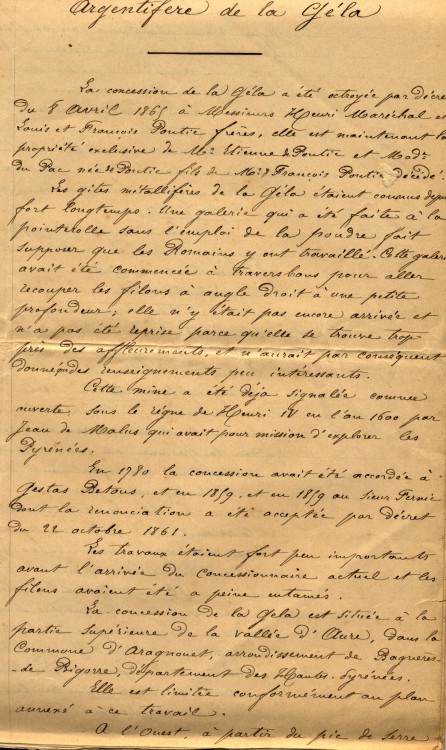 Argentifère de la Géla
La concession de la Géla a été octroyée par décret
du 8 Avril 1865 à Messieurs Henri Maréchal et
Louis et François Pontic frères, elle est maintenant la
propriété exclusive de Mr. Etienne de Pontic et Made
du Pac née de Pontic fils de Mr. François Pontic décédé.
Les gîtes métallifères de la Géla étaient connus depuis
fort longtemps. Une galerie qui a été faite à la
pointerolle sans l'emploi de la poudre fait
supposer que les Romains y ont travaillé. Cette galerie
avait été commencée à travers bancs pour aller
recouper les filons à angle droit à une petite
profondeur; elle n'y était pas encore arrivée et
n'a pas été reprise parce qu'elle se trouve trop
près des affleurements, et n'aurait par conséquent
donné que des renseignements peu intéressants.
Cette mine a été déjà signalée comme
ouverte, sous le règne de Henri IV en l'an 1600 par
Jean de Malus qui avait pour mission d'explorer les
Pyrénées.
En 1780 la concession avait été accordée à
Gestas Betous, et en 1859, et en 1859 au Sieur
dont la renonciation a été acceptée par décret
du 22 octobre 1861.
Les travaux étaient fort peu importants
avant l'arrivée du concessionnaire actuel et les
filons avaient été a peine entamés.
La concession de la Géla est située à la
partie supérieure de la vallée d'Aure, dans la
Commune d'Aragnouet, arrondissement de Bagnères-
-de Bigorre, département des Hautes-Pyrénées.
Elle est limitée conformément au plan
annexé à ce travail.
A l'Ouest, à partir du pic de Serre